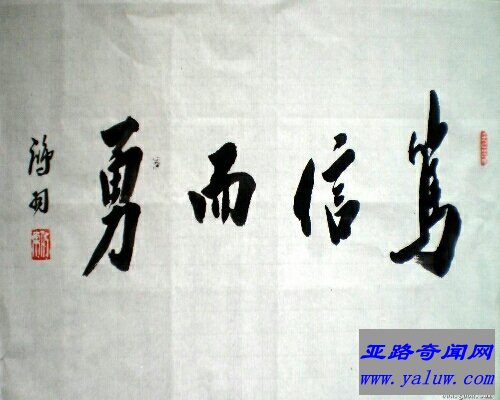 篤信而勇
鸿羽
亚路奇闻网
www.yaluw.com